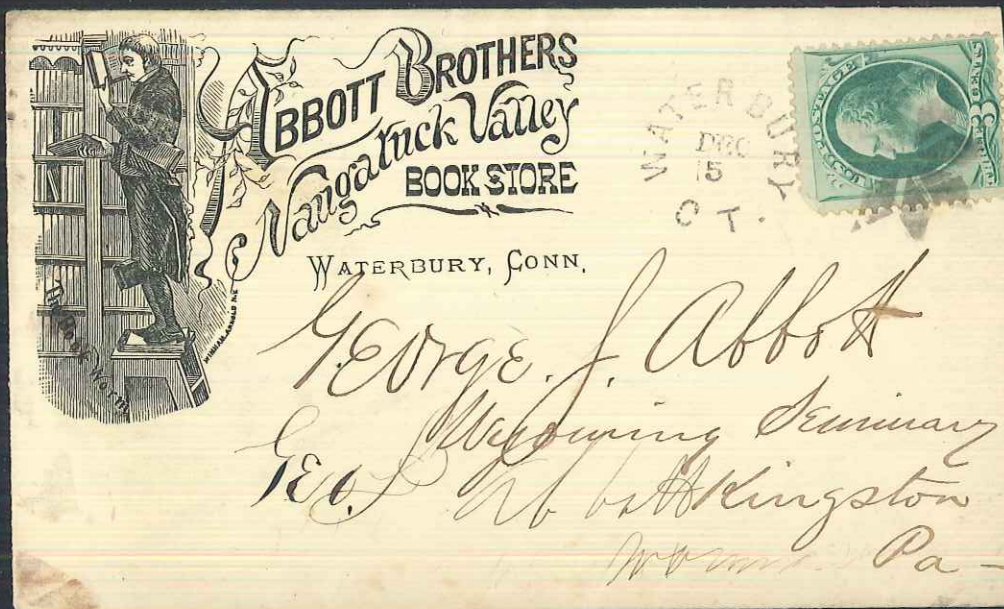 ABBOTT BROTHERS
Naugatuck Valley
BOOK STORE
WATERBURY, CONN.
The Book Worm
WATERBURY
DEC
15
CT.
U.S. POSTAGE
3 CENTS
George. J. Abbott
Wyoming Seminary
Geo. Abbott Kingston
Pa